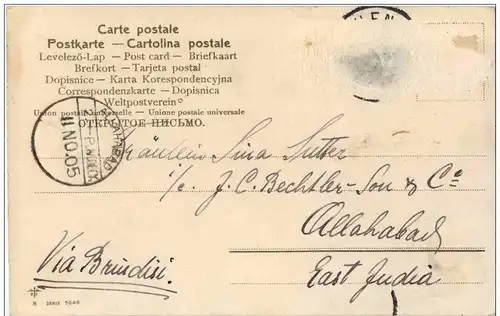 Carte postale
Postkarte — Cartolina postale
Levelező-Lap — Post card — Briefkaart
Brefkort — Tarjeta postal
Dopisnice — Karta Korespondencyjna
Correspondenzkarte — Dopisnica
Weltpostverein
Union postale universelle — Unione postale universale
ОТКРЫТОЕ ПИСЬМО.
ALLAHABAD
11 NO.05
Fräulein Lina Sutter
c/o J. C. Bechtler-Son & Co
Allahabad
East India
Via Brindisi.